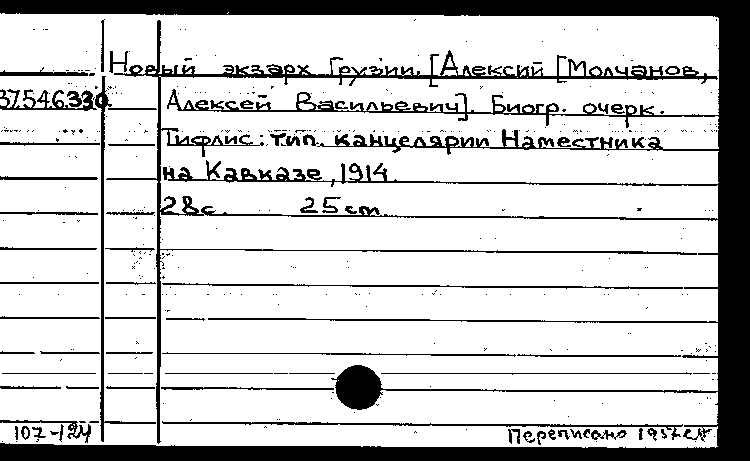 Новый экзарх Грузии. [Алексий [Молчанов,
37.546.330. Алексей Васильевич]. Биогр. очерк.
Тифлис: тип. канцелярии Наместника
на Кавказе, 1914.
28с. 25 см.
107-124 Переписано 1957